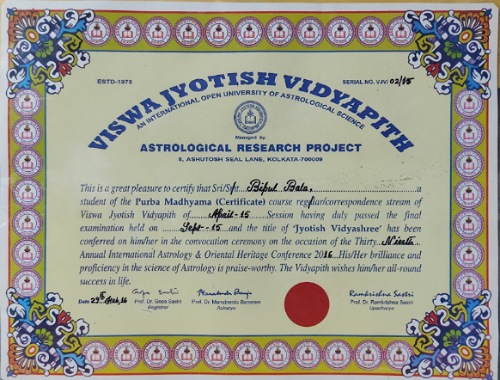 ESTD-1975
SERIAL NO. VJV/ 02/15
VISWA JYOTISH VIDYAPITH
AN INTERNATIONAL OPEN UNIVERSITY OF ASTROLOGICAL SCIENCE
Managed by
ASTROLOGICAL RESEARCH PROJECT
9, ASHUTOSH SEAL LANE, KOLKATA-700009
This is a great pleasure to certify that Sri/Smt Bipul Bala, a
student of the Purba Madhyama (Certificate) course regular/correspondence stream of
Viswa Jyotish Vidyapith of April-15 Session having duly passed the final
examination held on Sept-15 and the title of 'Jyotish Vidyashree' has been
conferred on him/her in the convocation ceremony on the occasion of the Thirty Nineth
Annual International Astrology & Oriental Heritage Conference 2016. His/Her brilliance and
proficiency in the science of Astrology is praise-worthy. The Vidyapith wishes him/her all-round
success in life.
Ramkrishna Sastri
Date
Prof. Dr. Ramkrishna Sastri
Registrar
Acharya
Upacharya